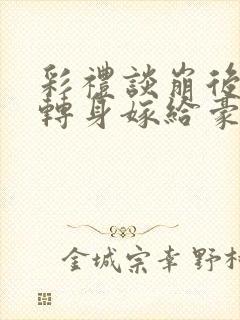 彩禮談崩後
轉身嫁給豪
金城宗幸野村